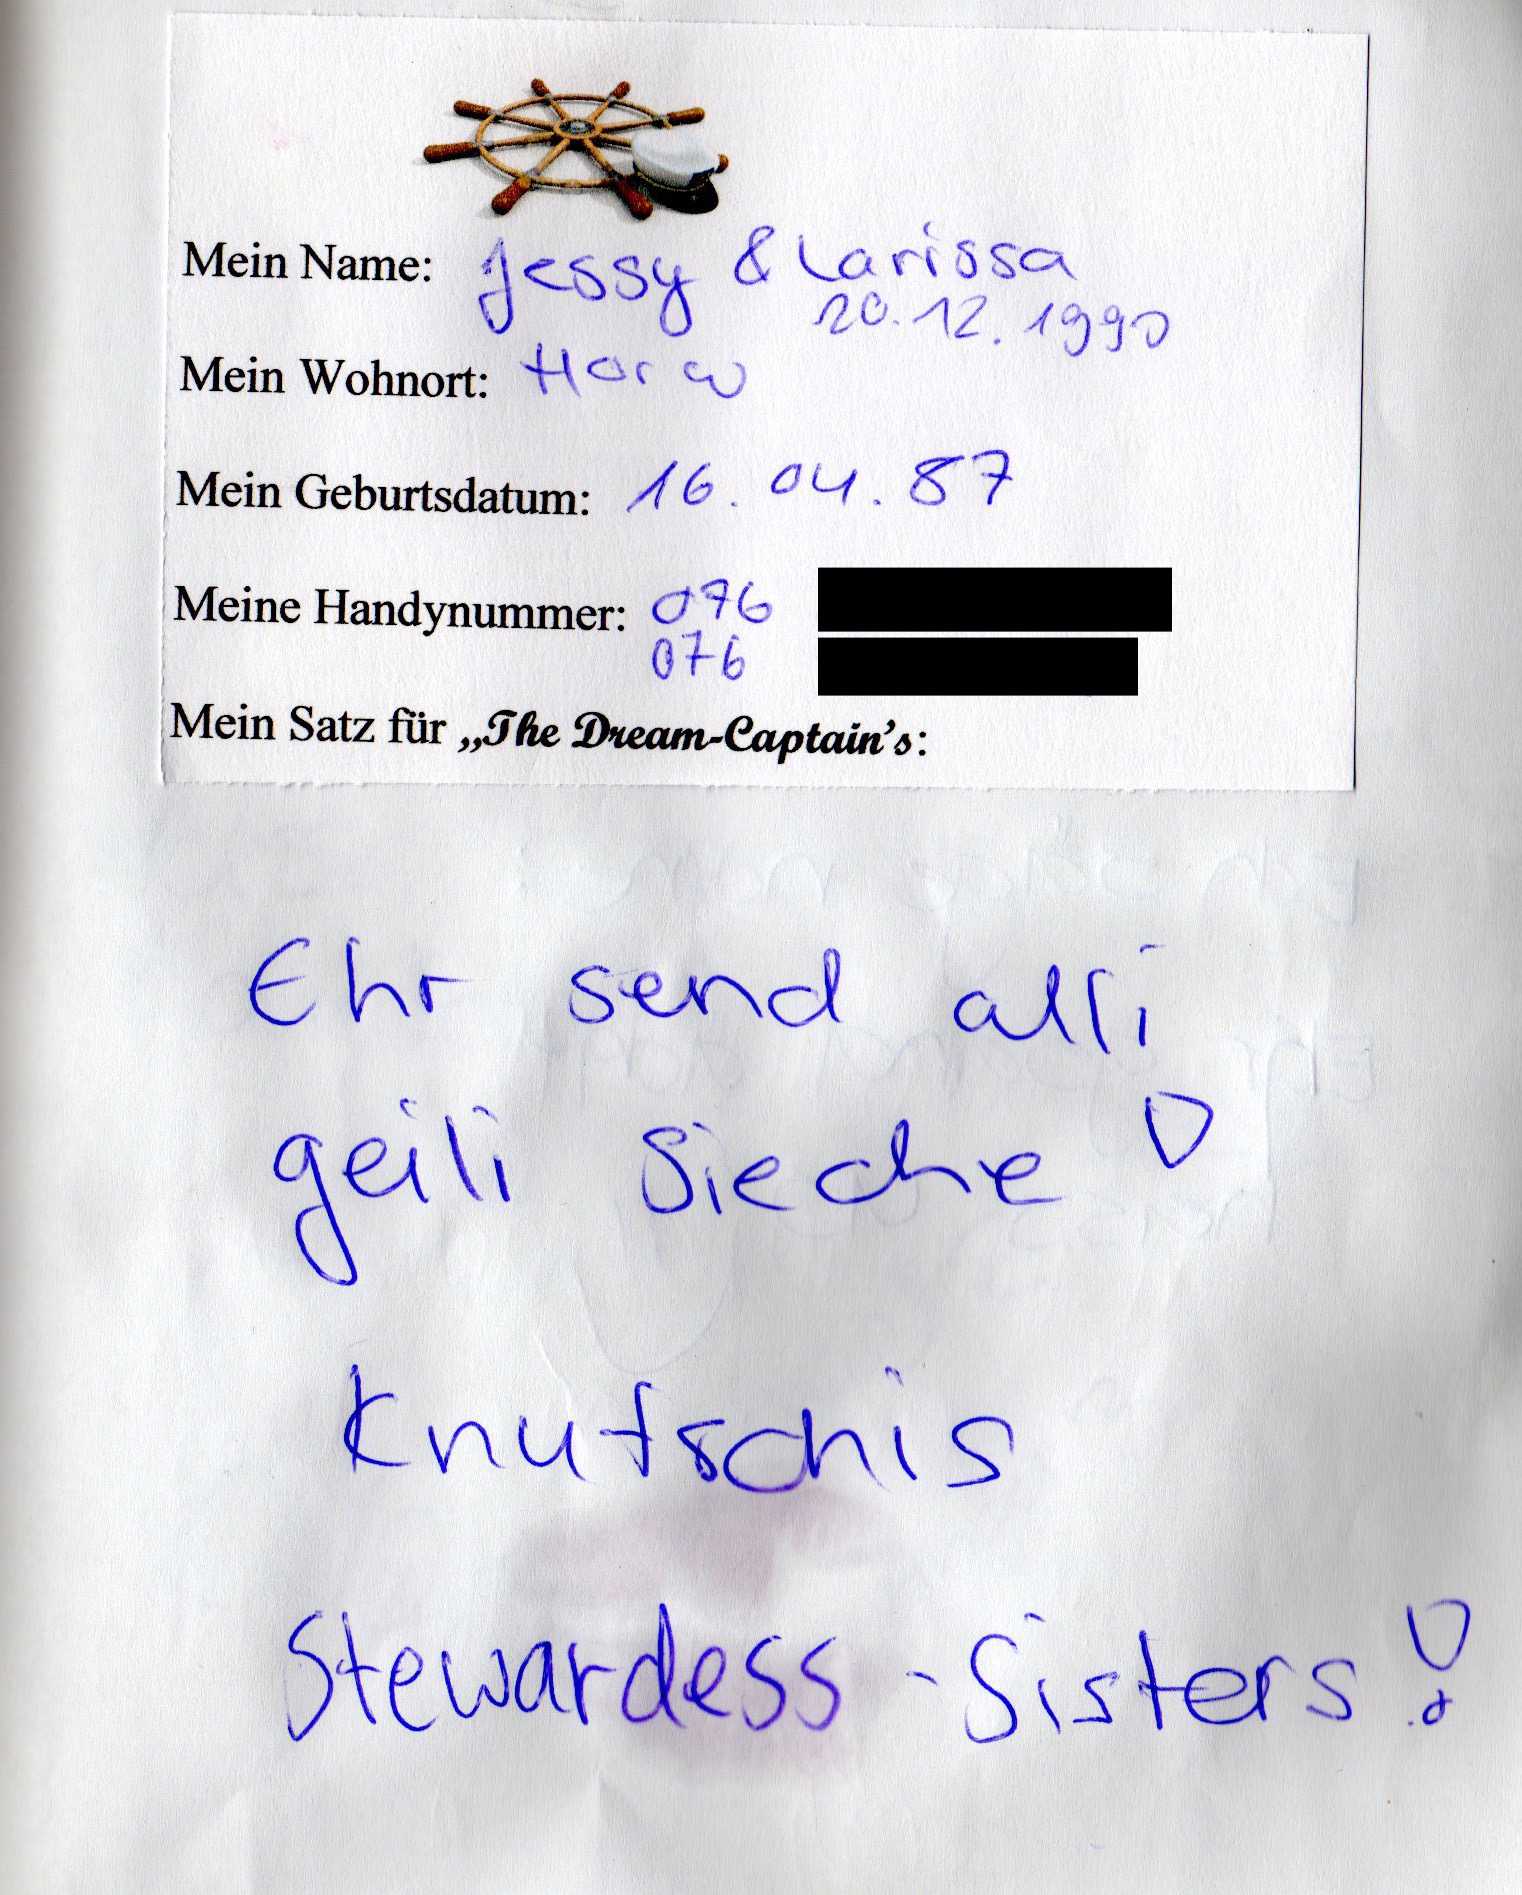 Mein Name: Jessy & Larissa
20.12.1990
Mein Wohnort: Horw
Mein Geburtsdatum: 16.04.87
Meine Handynummer: 076
076
Mein Satz für „The Dream-Captain's:
Ehr send alli
geili Sieche!
Knutschis
Stewardess-Sisters!